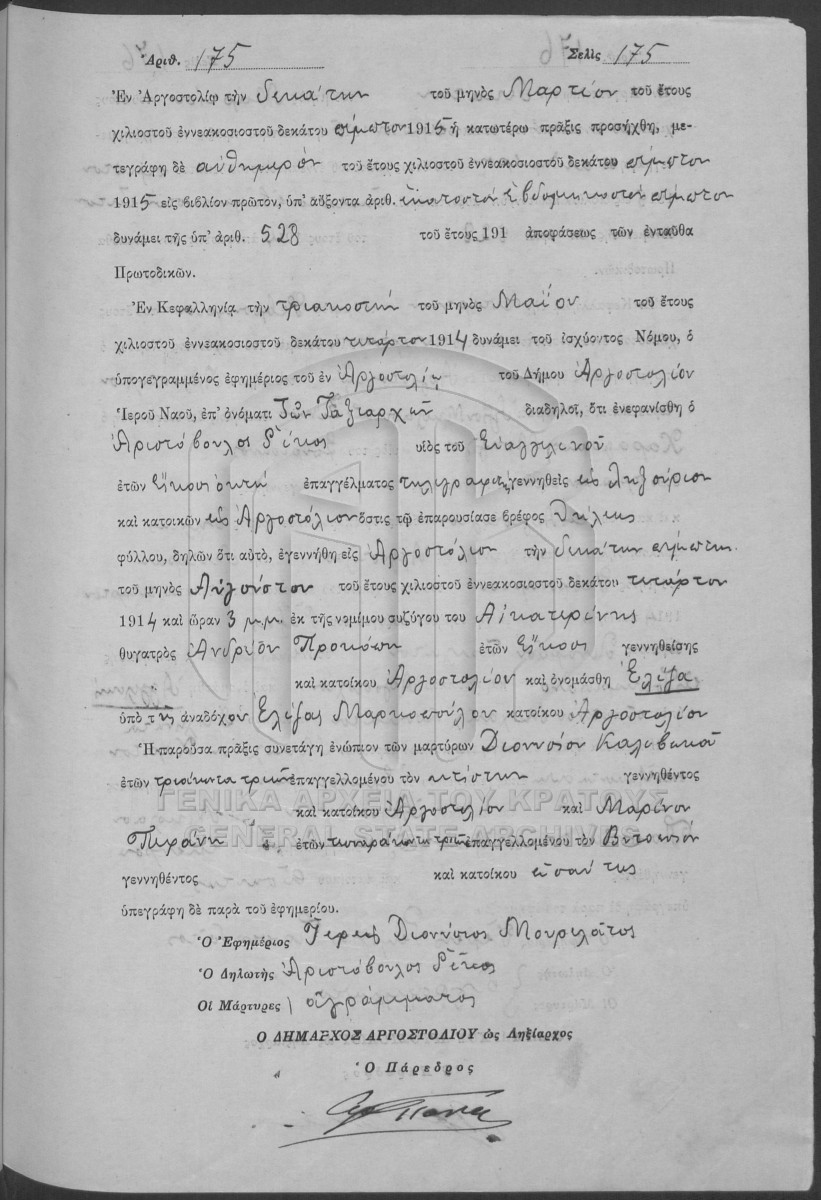 Ἀριθ. 175 Σελὶς 175
Ἐν Ἀργοστολίῳ τὴν δεκάτην τοῦ μηνὸς Μαρτίου τοῦ ἔτους
χιλιοστοῦ ἐννεακοσιοστοῦ δεκάτου πέμπτου 1915 ἡ κατωτέρω πρᾶξις προσήχθη, με-
τεγράφη δὲ αὐθημερὸν τοῦ ἔτους χιλιοστοῦ ἐννεακοσιοστοῦ δεκάτου πέμπτου
1915 εἰς βιβλίον πρῶτον, ὑπ' αὔξοντα ἀριθ. ἑκατοστὸν ἑβδομηκοστὸν πέμπτον
δυνάμει τῆς ὑπ' ἀριθ. 528 τοῦ ἔτους 191 ἀποφάσεως τῶν ἐνταῦθα
Πρωτοδικῶν.
Ἐν Κεφαλληνίᾳ τὴν τριακοστὴν τοῦ μηνὸς Μαΐου τοῦ ἔτους
χιλιοστοῦ ἐννεακοσιοστοῦ δεκάτου τετάρτου 1914 δυνάμει τοῦ ἰσχύοντος Νόμου, ὁ
ὑπογεγραμμένος ἐφημέριος τοῦ ἐν Ἀργοστολίῳ τοῦ Δήμου Ἀργοστολίου
Ἱεροῦ Ναοῦ, ἐπ' ὀνόματι Τῶν Ταξιαρχῶν διαδηλοῖ, ὅτι ἐνεφανίσθη ὁ
Ἀριστόβουλος υἱὸς τοῦ Εὐαγγελινοῦ
ἐτῶν εἴκοσι ὀκτὼ ἐπαγγέλματος γεννηθεὶς εἰς Ληξούριον
καὶ κατοικῶν εἰς Ἀργοστόλιον ὅστις τῷ ἐπαρουσίασε βρέφος θήλεως
φύλλου, δηλῶν ὅτι αὐτὸ, ἐγεννήθη εἰς Ἀργοστόλιον τὴν δεκάτην πέμπτην
τοῦ μηνὸς Αὐγούστου τοῦ ἔτους χιλιοστοῦ ἐννεακοσιοστοῦ δεκάτου τετάρτου
1914 καὶ ὥραν 3 μ.μ. ἐκ τῆς νομίμου συζύγου του Αἰκατερίνης
θυγατρὸς Ἀνδρέου Προκόπη ἐτῶν εἴκοσι γεννηθείσης
καὶ κατοίκου Ἀργοστολίου καὶ ὀνομάσθη Ἐλίζα
ὑπὸ τῆς ἀναδόχου Ἐλίζας Μαρκοπούλου κατοίκου Ἀργοστολίου
Ἡ παροῦσα πρᾶξις συνετάγη ἐνώπιον τῶν μαρτύρων Διονυσίου
ἐτῶν τριάκοντα τριῶν ἐπαγγελλομένου τὸν κτίστην γεννηθέντος
καὶ κατοίκου Ἀργοστολίου καὶ Μαρίνου
ἐτῶν ἐπαγγελλομένου τὸν
γεννηθέντος καὶ κατοίκου
ὑπεγράφη δὲ παρὰ τοῦ ἐφημερίου.
Ὁ Ἐφημέριος Ἱερεὺς Διονύσιος Μουρελάτος
Ὁ Δηλωτὴς Ἀριστόβουλος
Οἱ Μάρτυρες ἀγράμματος
Ο ΔΗΜΑΡΧΟΣ ΑΡΓΟΣΤΟΛΙΟΥ ὡς Ληξίαρχος
Ὁ Πάρεδρος
ΓΕΝΙΚΑ ΑΡΧΕΙΑ ΤΟΥ ΚΡΑΤΟΥΣ
GENERAL STATE ARCHIVES